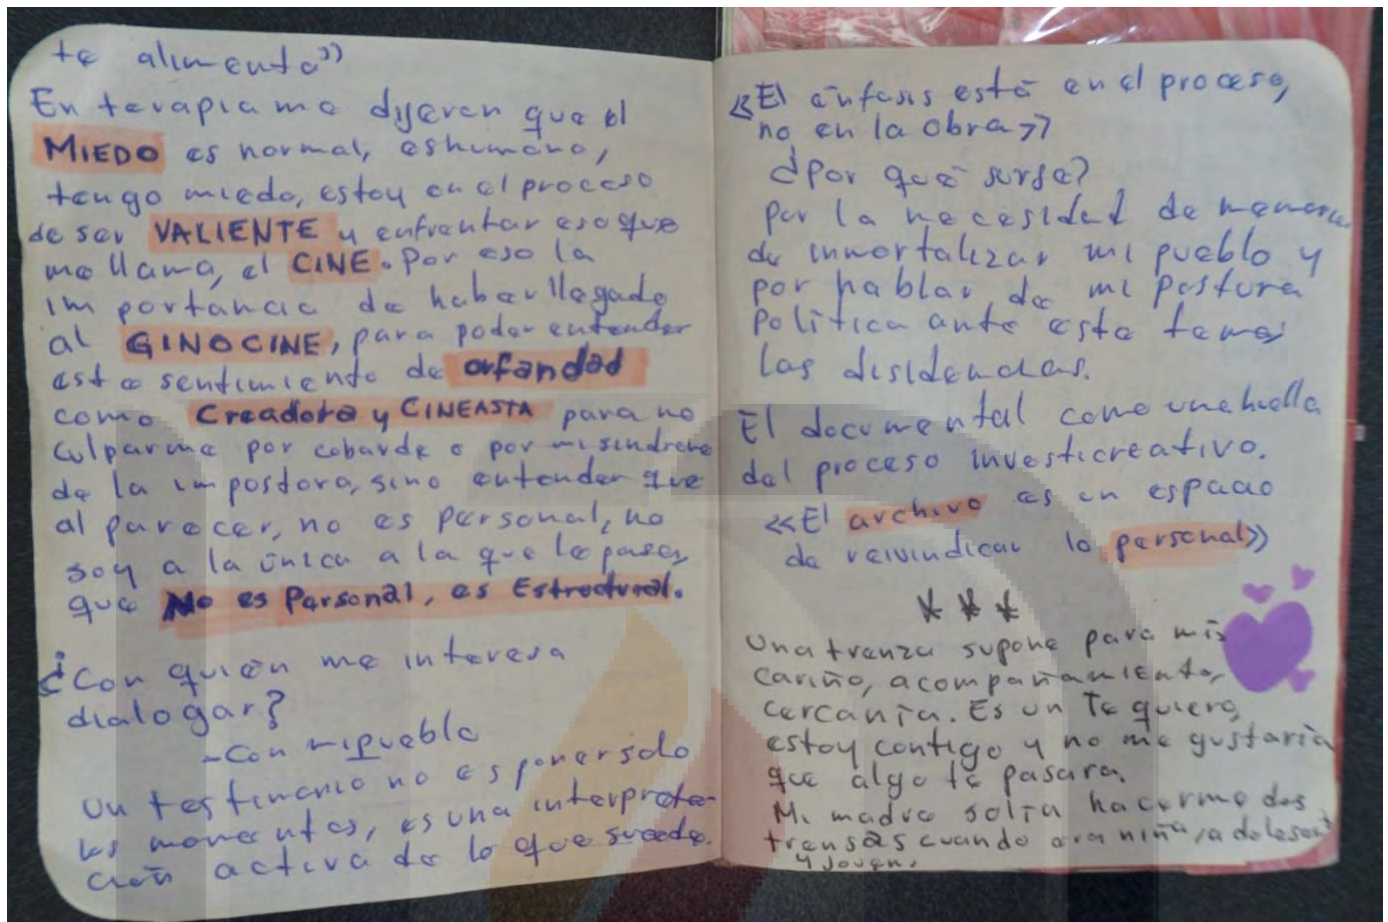 te alimenta»
En terapia me dijeron que el
MIEDO es normal, es humano,
tengo miedo, estoy en el proceso
de ser VALIENTE y enfrentar eso que
me llama, el CINE. Por eso la
importancia de haber llegado
al GINOCINE, para poder entender
este sentimiento de orfandad
como Creadora y CINEASTA para no
culparme por cobarde o por mi sindrome
de la impostora, sino entender que
al parecer, no es personal, no
soy a la única a la que le pasa,
que No es Personal, es Estructural.
¿Con quién me interesa
dialogar?
- Con mi pueblo
Un testimonio no es poner solo
los momentos, es una interpreta-
ción activa de lo que sucede.
«El énfasis está en el proceso,
no en la obra»
¿Por qué surge?
por la necesidad de memoria
de inmortalizar mi pueblo y
por hablar de mi postura
política ante este tema,
las disidencias.
El documental como una huella
del proceso investicreativo.
«El archivo es un espacio
de reivindicar lo personal»
* * *
Una trenza supone para mis
cariño, acompañamiento,
cercanía. Es un Te quiero,
estoy contigo y no me gustaría
que algo te pasara.
Mi madre solía hacerme dos
trensas cuando era niña, adolescent
y joven.